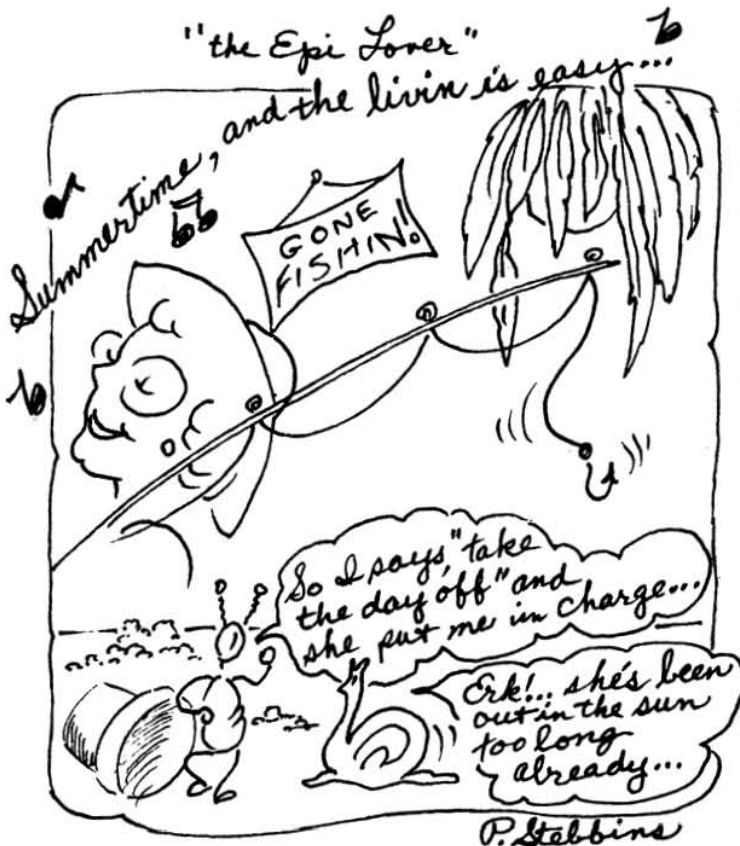 "the Epi Lover"
Summertime, and the livin is easy...
GONE
FISHIN'!
So I says, "take
the day off" and
she put me in charge...
Erk!.. she's been
out in the sun
too long
already...
P. Stebbins